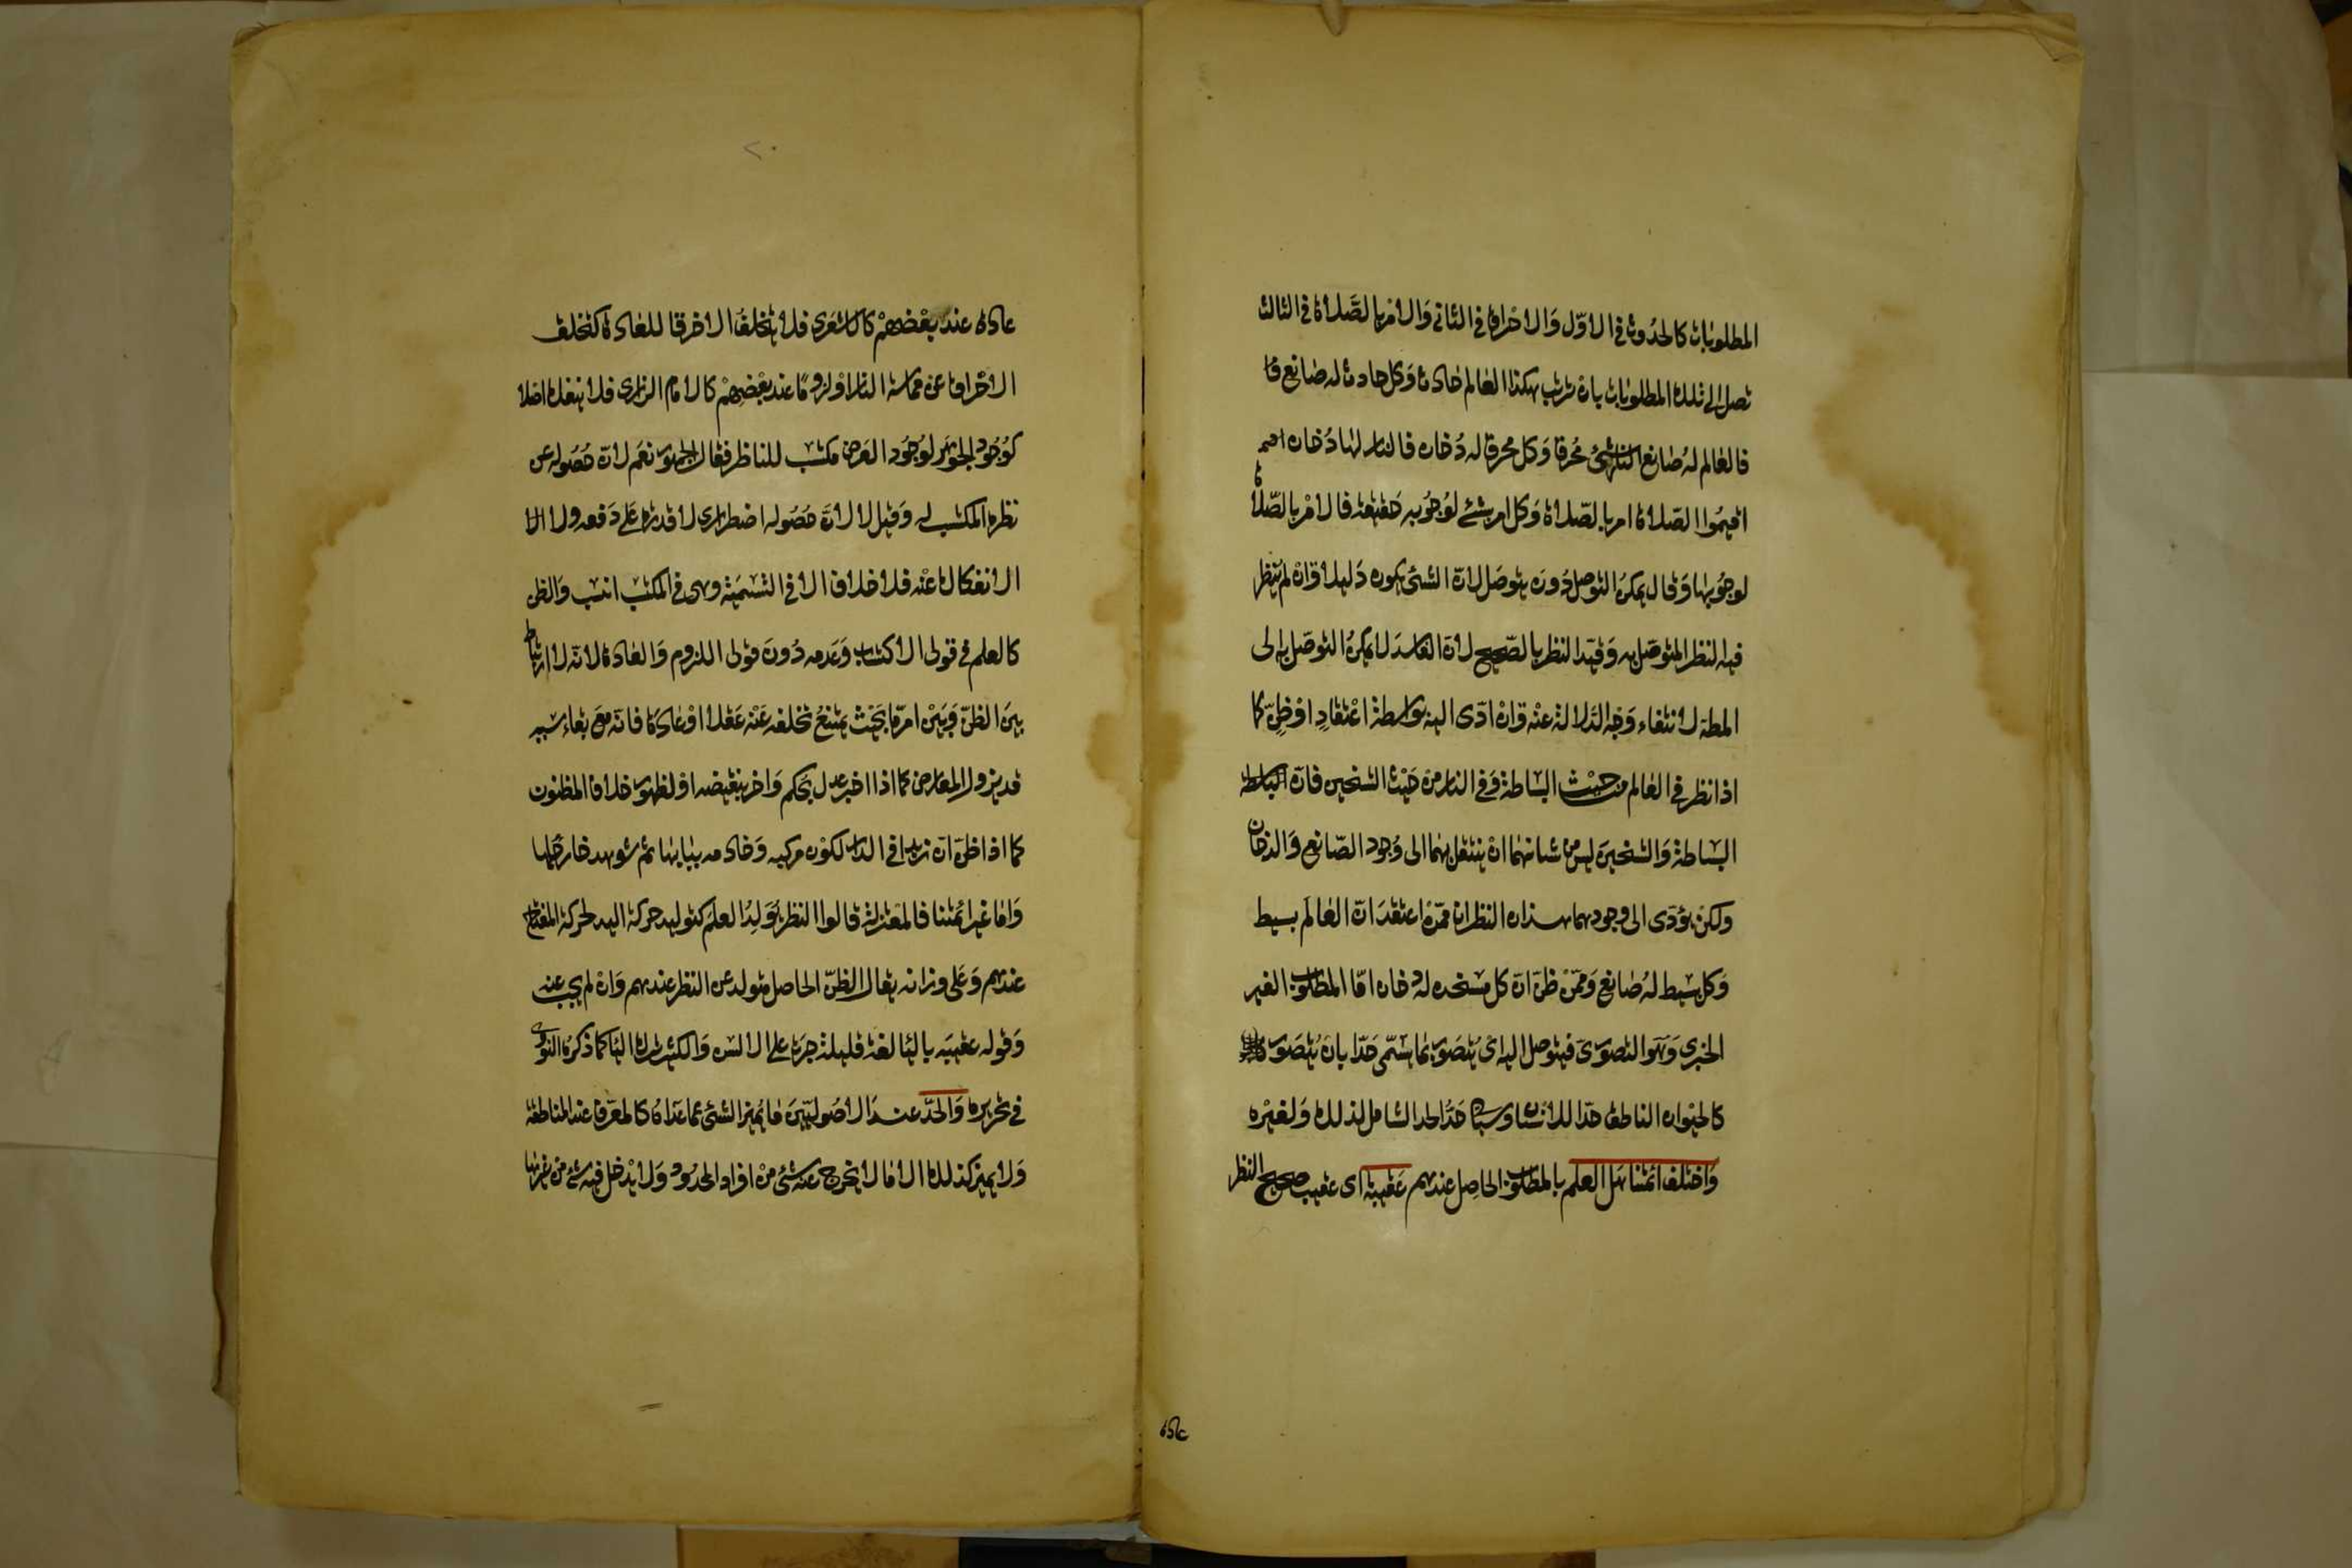 المطلوبات كالحدوث في الاول والاحراق في الثاني والامر بالصلاة في الثالث
تصل الى تلك المطلوبات بان ترتب هكذا العالم حادث وكل حادث له صانع
فالعالم له صانع النار شئ محرق وكل محرق له دخان فالنار لها دخان
اقيموا الصلاة امر بالصلاة وكل امر بشئ لوجوبه حقيقة فالامر بالصلاة
لوجوبها وقال يمكن التوصل دون يتوصل لان الشئ يكون دليلا وان لم ينظر
فيه النظر المتوصل به وقيد النظر بالصحيح لان الفاسد لا يمكن التوصل به الى
المط لانتفاء وجه الدلالة عنه وان ادى اليه بواسطة اعتقاد او ظن كما
اذا نظر في العالم من حيث البساطة وفي النار من حيث التسخين فان
البساطة والتسخين ليس من شانهما ان ينتقل بهما الى وجود الصانع والدخان
ولكن يؤدى الى وجودهما هذان النظران ممن اعتقد ان العالم بسيط
وكل بسيط له صانع وممن ظن ان كل مسخن له دخان اما المطلوب الغير
الخبرى وهو التصورى فيتوصل اليه اى يتصور بما يسمى حدا بان يتصور
كالحيوان الناطق حدا للانسان وسياتى حد الحد الشامل لذلك ولغيره
واختلف ائمتنا هل العلم بالمطلوب الحاصل عندهم عقيبه اى عقيب صحيح النظر
عادة
عادة عند بعضهم كالاشعرى فلا يتخلف الا خرقا للعادة كتخلف
الاحراق عن مماسة النار او لزوما عند بعضهم كالامام الرازى فلا ينفك اصلا
كوجود الجوهر لوجود العرض مكتسب للناظر فقال الجمهور نعم لان حصوله عن
نظره المكتسب له وقيل لا لان حصوله اضطرارى لا قدرة على دفعه ولا
الانفكاك عنه فلا خلاف الا في التسمية وهى في المكتسب انسب والظن
كالعلم في قولى الاكتساب وعدمه دون قولى اللزوم والعادة لانه لا ارتباط
بين الظن وبين امر ما بحيث يمتنع تخلفه عنه عقلا او عادة فانه مع بقاء سببه
قد يزول لمعارض كما اذا اخبر عدل بحكم واخر بنقيضه او لظهور خلاف المظنون
كما اذا ظن ان زيدا في الدار لكون مركبه وخادمه ببابها ثم شوهد خارجها
واما غير ائمتنا فالمعتزلة قالوا النظر يولد العلم كتوليد حركة اليد لحركة المفتاح
عندهم وعلى وزانه يقال الظن الحاصل متولد عن النظر عندهم وان لم يجب عنه
وقوله عقيبه بالياء لغة قليلة جرت على الالسن والكثير ترك الياء كما ذكره النووى
في تحريره والحد عند الاصوليين ما يميز الشئ عما عداه كالمعرف عند المناطقة
ولا يميز كذلك الا ما لا يخرج عنه شئ من افراد المحدود ولا يدخل فيه شئ من غيرها